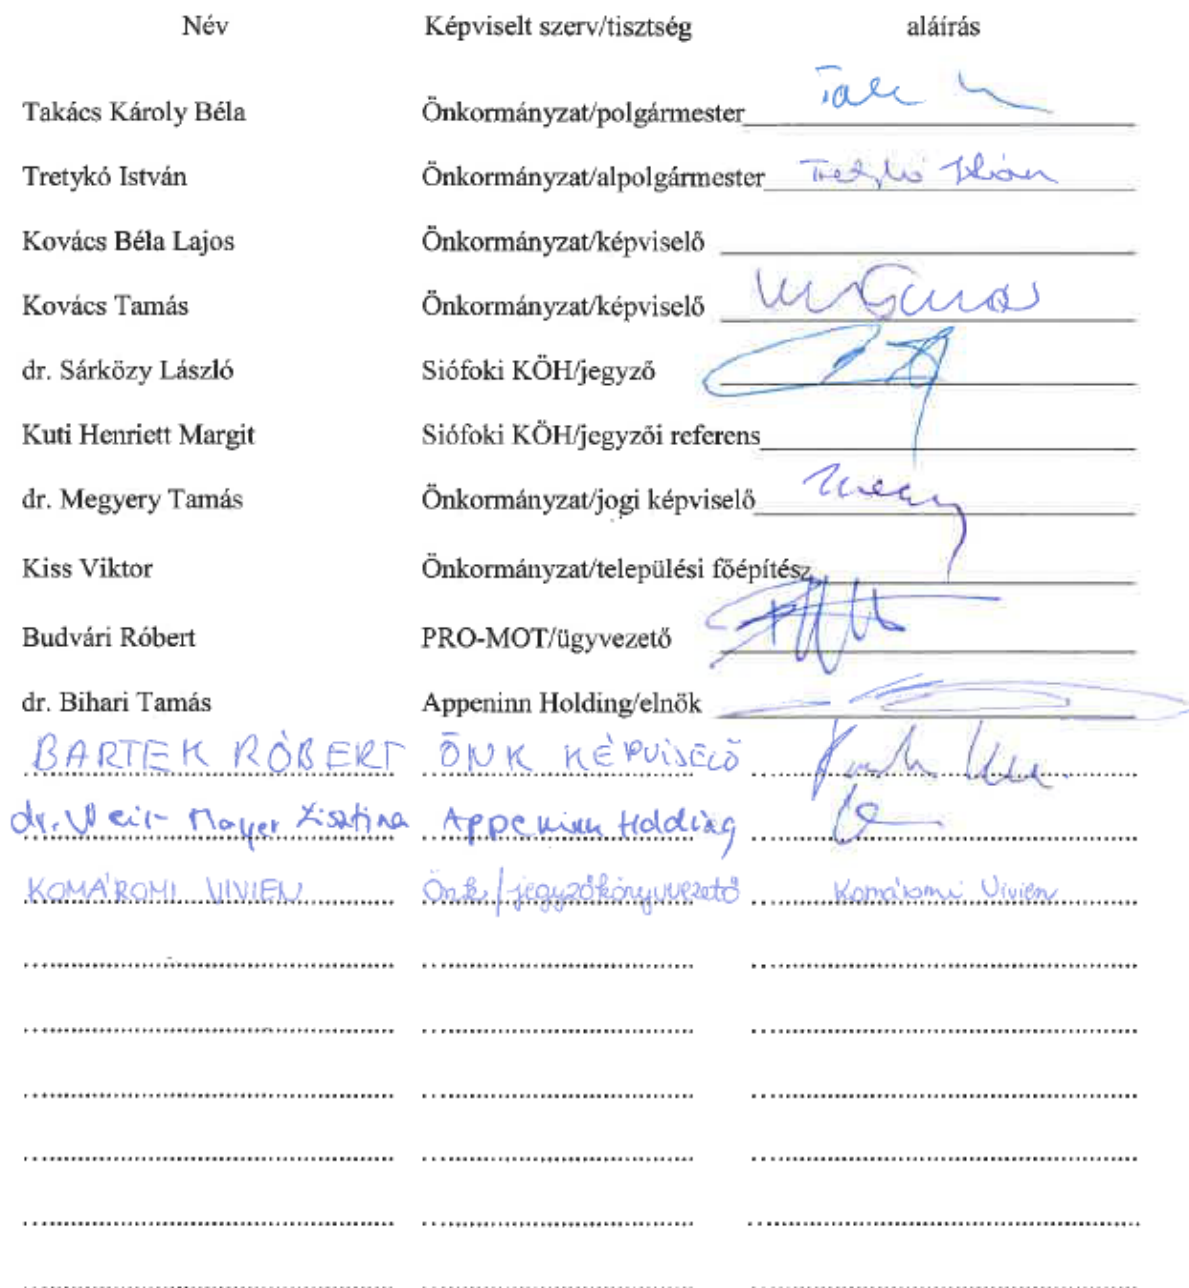 Név Képviselt szerv/tisztség aláírás
Takács Károly Béla Önkormányzat/polgármester
Tretykó István Önkormányzat/alpolgármester Tretykó István
Kovács Béla Lajos Önkormányzat/képviselő
Kovács Tamás Önkormányzat/képviselő
dr. Sárközy László Siófoki KÖH/jegyző
Kuti Henriett Margit Siófoki KÖH/jegyzői referens
dr. Megyery Tamás Önkormányzat/jogi képviselő
Kiss Viktor Önkormányzat/települési főépítész
Budvári Róbert PRO-MOT/ügyvezető
dr. Bihari Tamás Appeninn Holding/elnök
BARTEK RÓBERT ÖNK KÉPVISELŐ
dr. Mayer Appeninn Holding
KOMÁROMI VIVIEN Önk/jegyzőkönyvvezető Komáromi Vivien